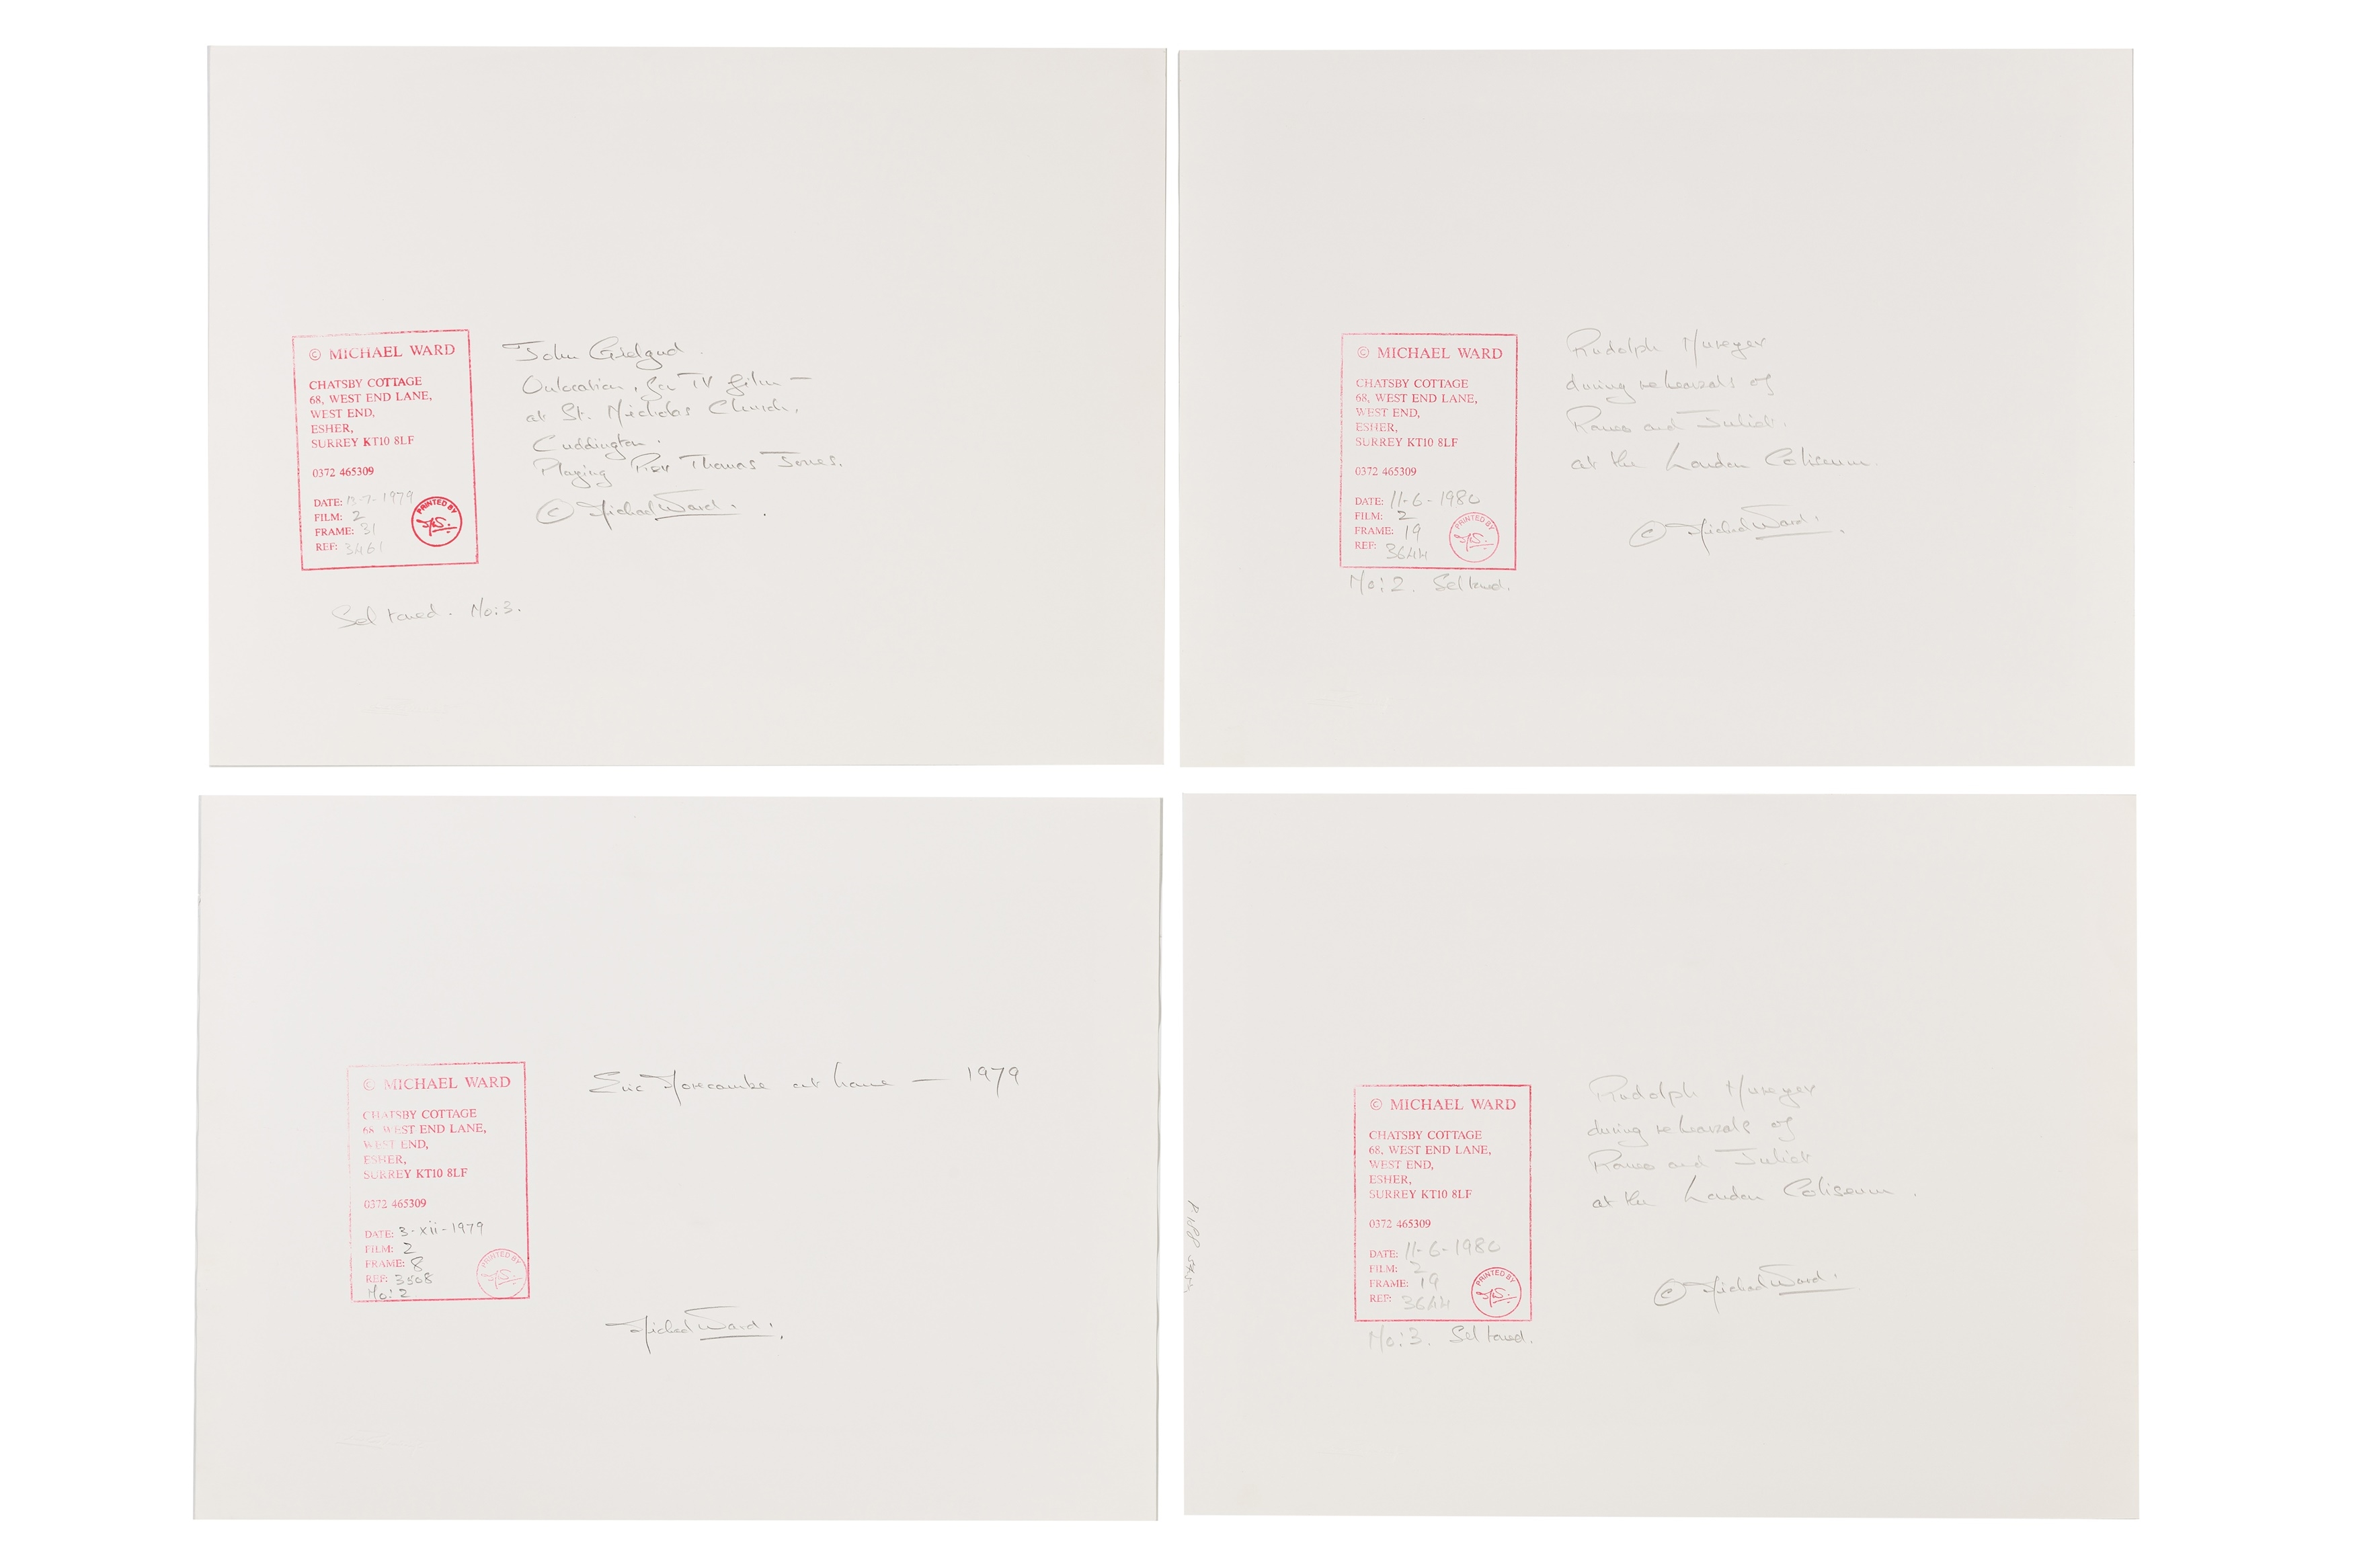 © MICHAEL WARD
CHATSBY COTTAGE
68, WEST END LANE,
WEST END,
ESHER,
SURREY KT10 8LF
0372 465309
DATE: 13-7-1979
FILM: 2
FRAME: 31
REF: 3461
PRINTED BY
John Gielgud
On location, for TV film —
at St. Nicholas Church,
Cuddington.
Playing Rev Thomas Jones.
© Michael Ward.
Sel toned. No: 3.
© MICHAEL WARD
CHATSBY COTTAGE
68, WEST END LANE,
WEST END,
ESHER,
SURREY KT10 8LF
0372 465309
DATE: 11-6-1980
FILM: 2
FRAME: 19
REF: 3644
PRINTED BY
No: 2. Sel toned.
Rudolph Nureyev
during rehearsals of
Romeo and Juliet.
at the London Coliseum.
© Michael Ward.
© MICHAEL WARD
CHATSBY COTTAGE
68, WEST END LANE,
WEST END,
ESHER,
SURREY KT10 8LF
0372 465309
DATE: 3-xii-1979
FILM: 2
FRAME: 8
REF: 3508
No: 2
PRINTED BY
Eric Morecambe at home — 1979
Michael Ward.
© MICHAEL WARD
CHATSBY COTTAGE
68, WEST END LANE,
WEST END,
ESHER,
SURREY KT10 8LF
0372 465309
DATE: 11-6-1980
FILM: 2
FRAME: 19
REF: 3644
PRINTED BY
No: 3. Sel toned.
Rudolph Nureyev
during rehearsals of
Romeo and Juliet
at the London Coliseum.
© Michael Ward.